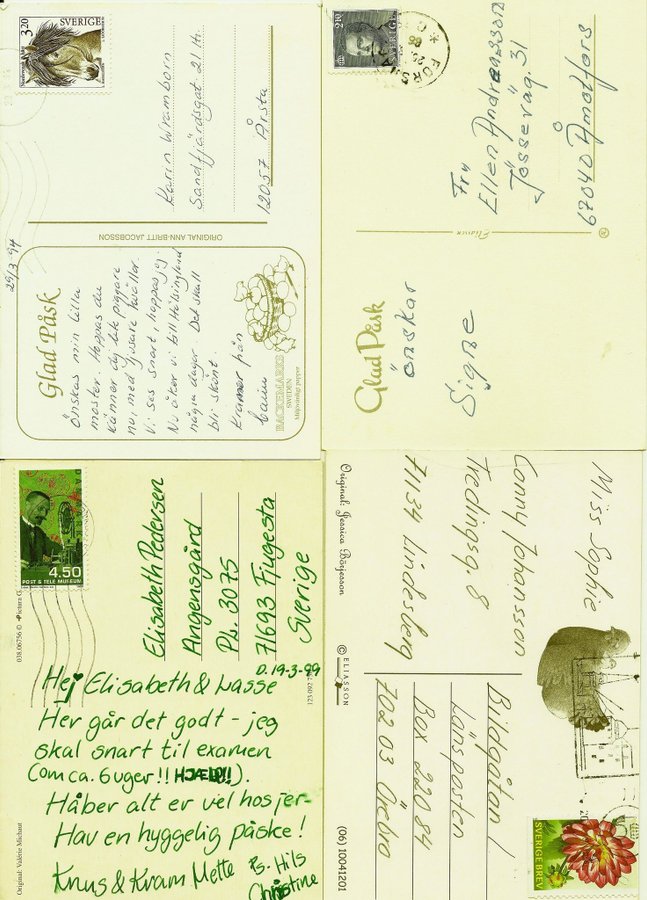 3.20
SVERIGE
Karin Wramborn
Sandfjärdsgat 21 4tr.
12057 Årsta
ORIGINAL ANN-BRITT JACOBSSON
29/3-94
Glad Påsk
Önskas min lilla
moster. Hoppas du
känner dig lite piggare
nu, med ljusare kvällar.
Vi ses snart, hoppas jag.
Nu åker vi till Helsingland
några dagar. Det skall
bli skönt.
Kramar från
BACKEMARKS
SWEDEN
Miljövänligt papper
2.10
SVERIGE
Fru
Ellen Andreasson
Jösseväg. 31
67040 Åmotfors
Eliasson
Glad Påsk
önskar
Signe
4.50
POST & TELE MUSEUM
DANMARK
Elisabeth Pedersen
Angensgård
Pl. 3075
71693 Fjugesta
Sverige
038.06756 © Pictura G.
D. 19-3-99
Hej Elisabeth & Lasse
Her går det godt - jeg
skal snart til examen
(om ca. 6 uger!! HJÆLP!!).
Håber alt er vel hos jer-
Hav en hyggelig påske!
Knus & Kram Mette
Ps. Hils
Christine
Original: Valérie Michaut
Miss Sophie
Conny Johansson
Tredingsg. 8
71134 Lindesberg
Original: Jessica Börjesson
© ELIASSON
(06) 10041201
Bildgåtan 1
Länsposten
Box 22084
702 03 Örebro
SVERIGE BREV